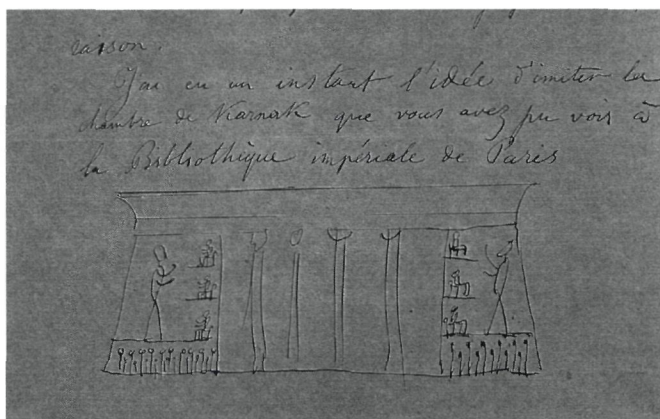 raison.
J'ai eu un instant l'idée d'imiter la
chambre de Karnak que vous avez pu voir à
la Bibliothèque impériale de Paris